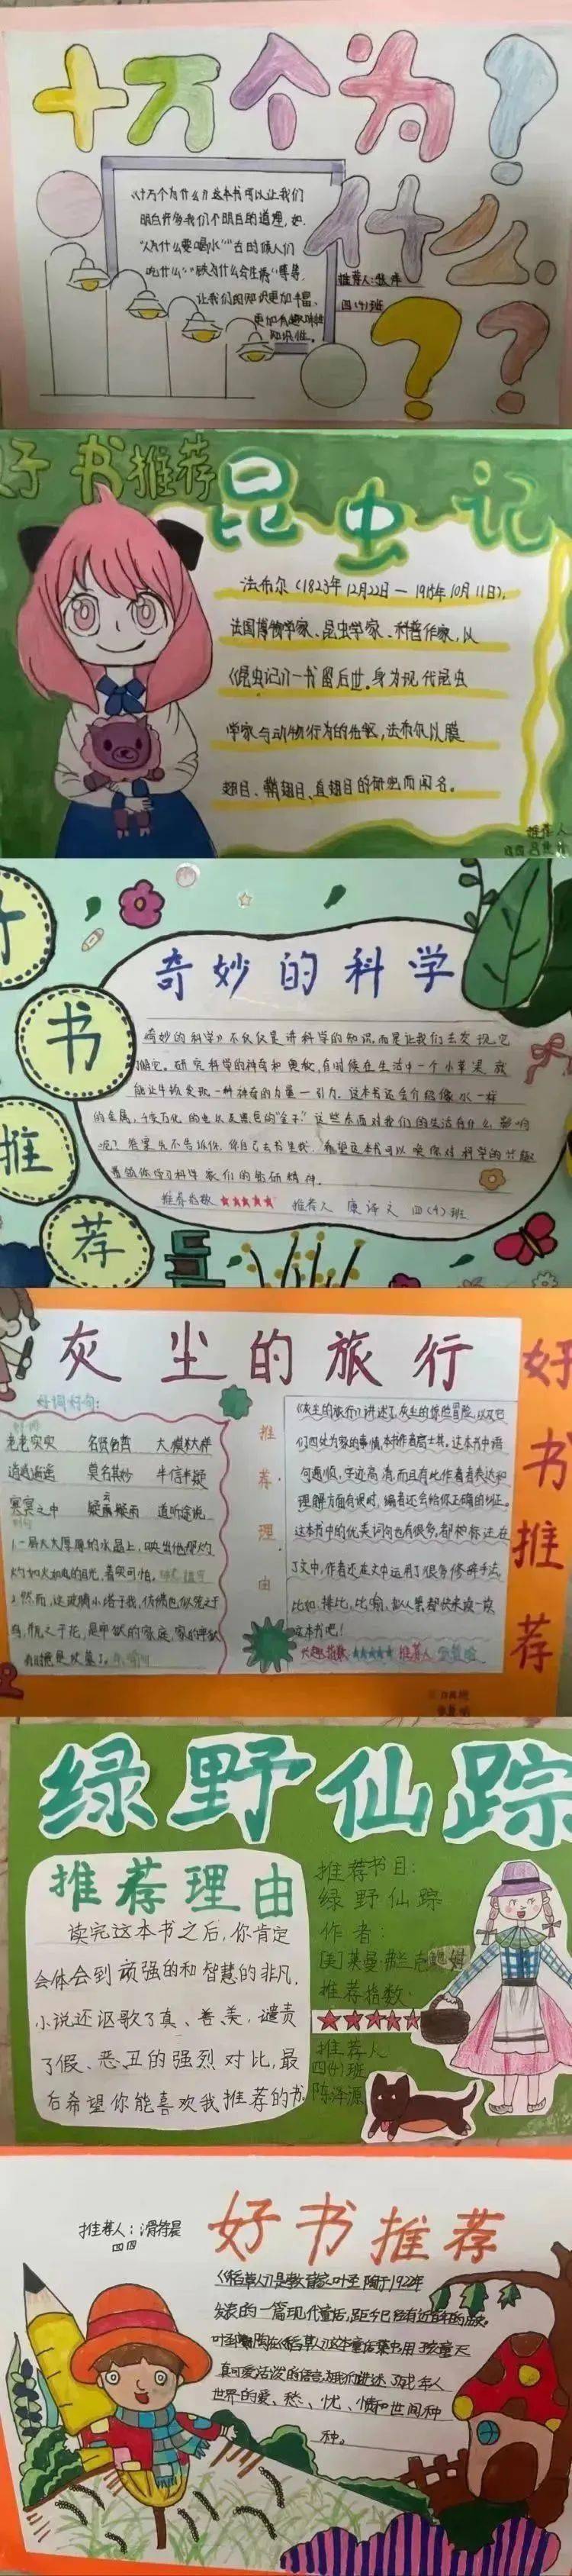 十万个为
什么
?
?
?
《十万个为什么》这本书可以让我们
明白许多我们不明白的道理，如：
"人为什么要喝水""古时候人们
吃什么""
让我们的知识更加丰富、
更加有趣味性
知识性。
推荐人:
四(4)班
好书推荐
昆虫记
法布尔(1823年12月22日—1915年10月11日),
法国博物学家、昆虫学家、科普作家,以
《昆虫记》一书留后世。身为现代昆虫
学家与动物行为的,法布尔以膜
翅目、鞘翅目、直翅目的研究而闻名。
推荐人
书
推
荐
奇妙的科学
奇妙的科学》不仅仅是讲科学的知识,而是让我们去发现它
研究科学的神奇和奥秘,有时候在生活中一个小苹果就
能让牛顿发现一种神奇的力量—引力。这本书还会介绍像水一样
的金属,千变万化的电以及黑色的"金子"这些东西对我们的生活有什么影响
呢?答案先不告诉你,你自己去书里找,希望这本书可以唤你对科学的兴趣
着领你学习科学家们的钻研精神。
推荐指数★★★★★ 推荐人 康译文 四(4)班
灰尘的旅行
好书推荐
好词好句:
老老实实 名贤白哲 大模大样
逍遥遥 莫名其妙 半信半疑
冥冥之中 疑云疑雨 道听途说
推荐理由
《灰尘的旅行》讲述了灰尘的惊险冒险,以及它
们四处为家的事情,本书作者高士其。这本书中语
句通顺,字迹高清,而且有此作者者表达和
理解方面有误时,编者还会给你正确的纠正。
这本书中的优美词句也有很多,都标注在
了文中,作者还在文中运用了很多修辞手法,
比如:排比,比喻,拟人等都快来读一读
这本书吧!
★★★★★ 推荐人
绿野仙踪
推荐理由
读完这本书之后,你肯定
会体会到顽强的和智慧的非凡,
小说还讴歌了真、善、美,谴责
了假、恶、丑的强烈对比,最
后希望你能喜欢我推荐的书
推荐书目:
绿野仙踪
作者:
[美]莱曼·弗兰克·鲍姆
推荐指数:
★★★★★
推荐人
四(4)班
陈泽源
推荐人:滑荷晨
四四
好书推荐
《稻草人》是教育家叶圣陶于1922年
发表的一篇现代童话,距今已经有近百年的历史。
叶圣陶在《稻草人》这本童话集中用孩童天
真可爱活泼的语言为我们讲述了成年人
世界的爱、愁、忧、愤和世间种
种。